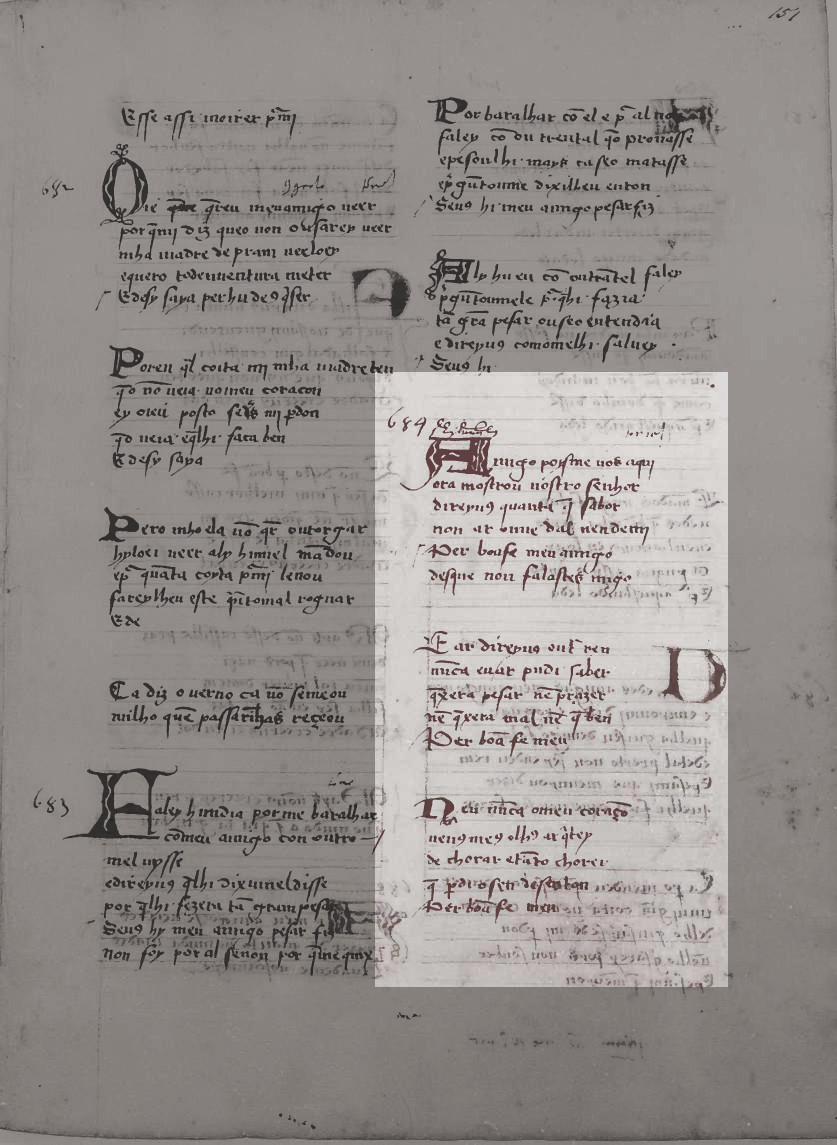 151
Esse assi morrer p̃mi
682
Que q̃reu meu amigo veer
por q̃mi diz que o non ousarey veer
mha madre de pram veeloey
e quero todeuuentura meter
E desy saya per hu de9 q̃ser
Poren q̃l coita mi mha madre ten
q̃o nõ veia no meu coraçon
ey oieu posto se mi pardon
q̃o veia e q̃lhi faça ben
E desy saya
Pero mho ela nõ q̃r outorgar
hyloei veer aly hu miel mãdou
e p̃ quãta coyta p̃mi leuou
fareylheu este
E de
Ca diz o uerno ca nõ semeou
milho quẽ passarinhas reçeou
683
Faley hũu dia por me baralhar
cõ meu amigo con outro
mel uysse
e direyu9 q̃lhi dixu meldisse
por q̃lhi fezera tã gram pesar
Seu9 hy meu amigo pesar fiz
non foy por al senon por q̃me quix
Por baralhar cõ el e p̃ al nõ
faley cõ ou tren tal q̃o prouasse
e pesoulhi mays ca seo matasse
e p̃gũtoume dixilleu enton
Seu9 hi meu amigo pesar fiz
Aly hu eu cõ outrã tel faley
p̃gũtoumele p̃ q̃lhi fazia
tã grã pesar ou seo entendia
e direyu9 como melhi saluey
Seu9 hi
684
Amigo poys me uos aqui
ora mostrou nostro senhor
direyu9 quant a q̃ sabor
non ar ouue dal nen de mi
Per bõa fe meu amigo
des que non falastes migo
E ar direyu9 outrã ren
nũca eu ar pudi saber
q̃xera pesar nẽ prazer
nẽ q̃xera mal nẽ q̃ ben
Per bõa fe meu
Nen nũca o meu coraçõ
nen9 me9 olh9 ar q̃tey
de chorar e tãto chorey
q̃ perdi o sen des enton
Per bõa fe meu